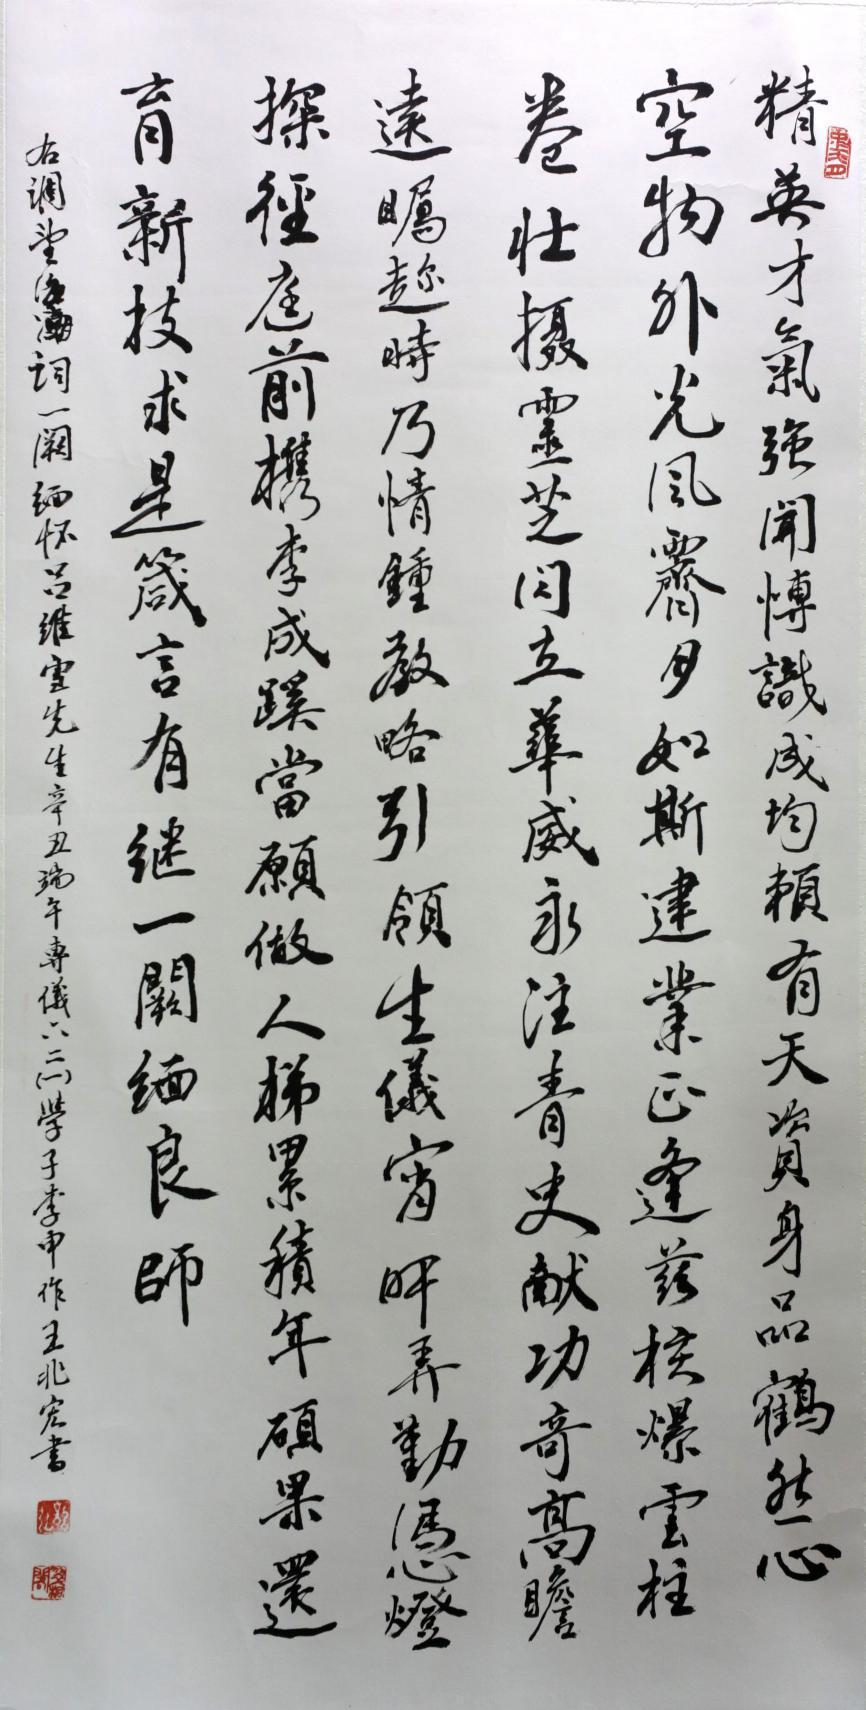 精英才氣強聞博識成均頼有天資身品鶴然心
空物外光風霽月如斯建業正逢兹核爆雲柱
卷壯摄靈芝閃立華威永注青史献功奇高瞻
遠矚趂時乃情鍾教略引領生儀宵旰弄勤憑燈
探徑庭前檇李成蹊當願做人梯累積年碩果還
育新技求是箴言有继一闋缅良師
右調望海潮詞一闋缅怀吕維雪先生辛丑端午專儀六二(一)學子李申作王兆宏書